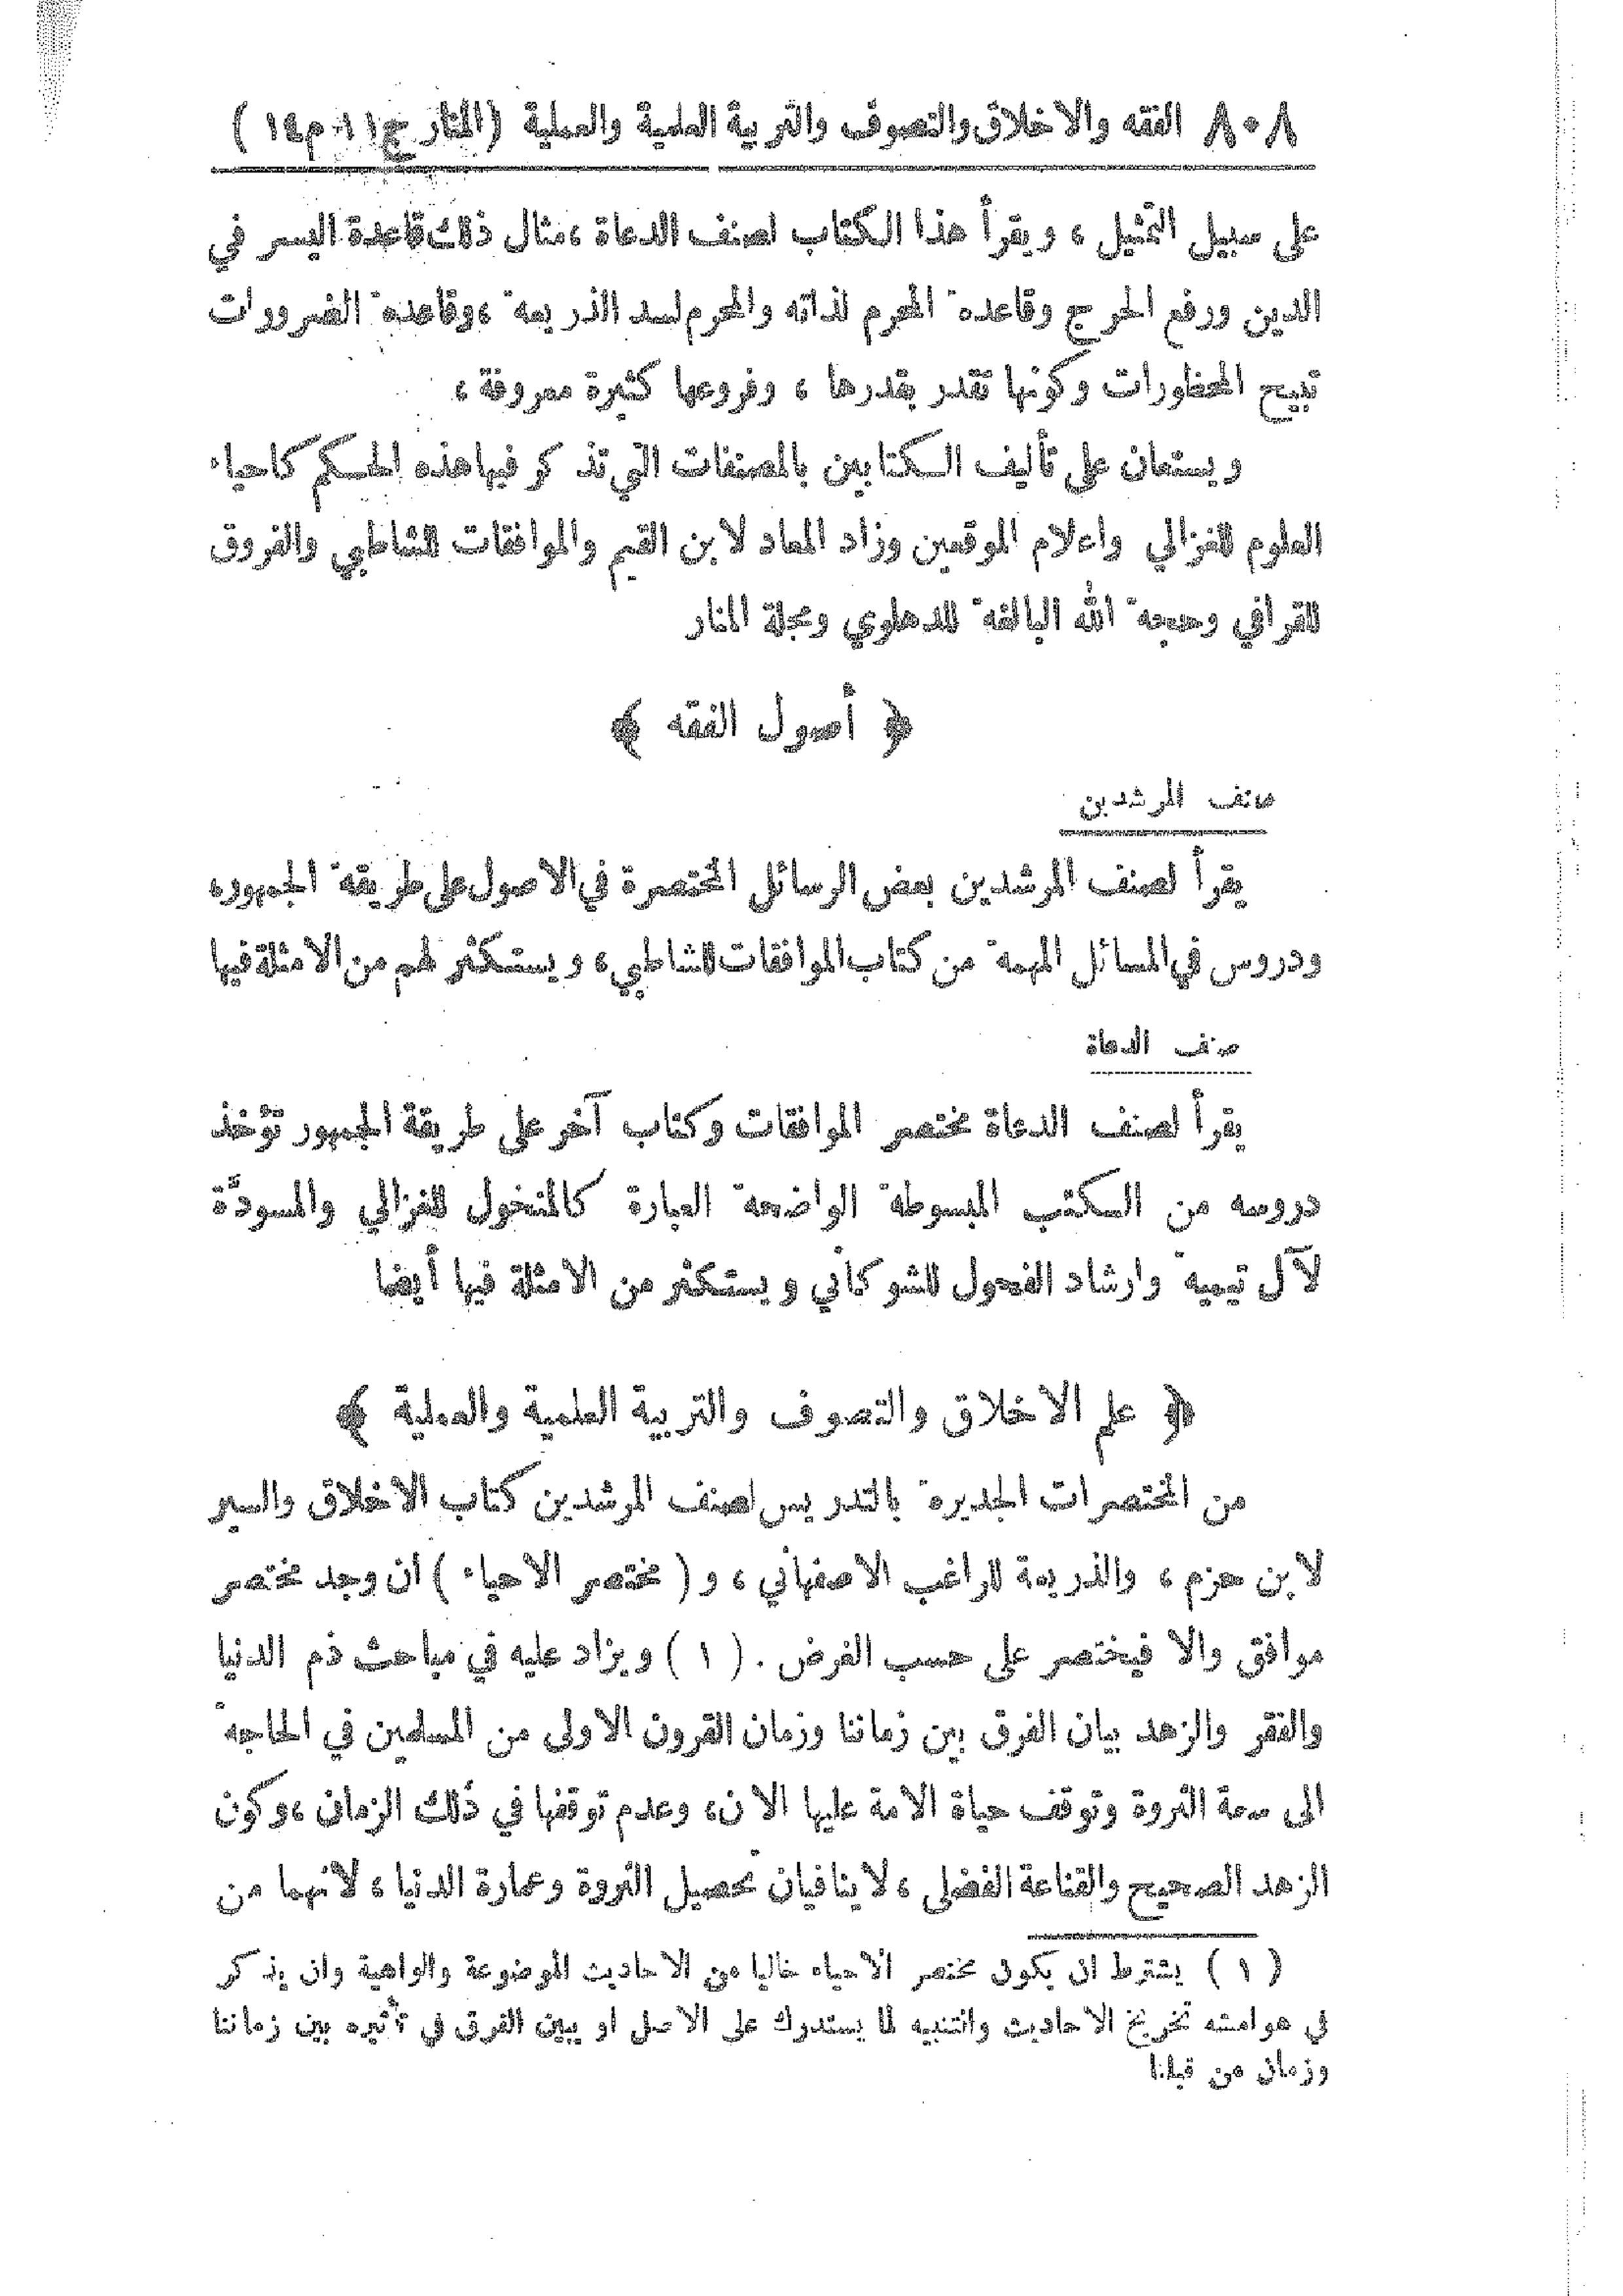 ٨٠٨ الفقه والاخلاق والتصوف والتربية العلمية والعملية (المنار ج١١ م١٤)
على سبيل التمثيل ، ويقرأ هذا الكتاب لصنف الدعاة ، مثال ذلك قاعدة اليسر في
الدين ورفع الحرج وقاعدة المحرم لذاته والمحرم لسد الذريعة ، وقاعدة الضرورات
تبيح المحظورات وكونها تقدر بقدرها ، وفروعها كثيرة معروفة ،
ويستعان على تأليف الكتابين بالمصنفات التي تذكر فيها هذه الحكم كاحياء
العلوم للغزالي واعلام الموقعين وزاد المعاد لابن القيم والموافقات للشاطبي والفروق
للقرافي وحجة الله البالغة للدهلوي ومجلة المنار
﴿ أصول الفقه ﴾
صنف المرشدين
يقرأ لصنف المرشدين بعض الرسائل المختصرة في الاصول على طريقة الجمهور،
ودروس في المسائل المهمة من كتاب الموافقات للشاطبي ، ويستكثر لهم من الامثلة فيها
صنف الدعاة
يقرأ لصنف الدعاة مختصر الموافقات وكتاب آخر على طريقة الجمهور تؤخذ
دروسه من الكتب المبسوطة الواضحة العبارة كالمنخول للغزالي والمسودَّة
لآل تيمية وارشاد الفحول للشوكاني ويستكثر من الامثلة فيها أيضا
﴿ علم الاخلاق والتصوف والتربية العلمية والعملية ﴾
من المختصرات الجديرة بالتدريس لصنف المرشدين كتاب الاخلاق والسير
لابن حزم ، والذريعة للراغب الاصفهاني ، و ( مختصر الاحياء ) ان وجد مختصر
موافق والا فيختصر على حسب الغرض . ( ١ ) ويزاد عليه في مباحث ذم الدنيا
والفقر والزهد بيان الفرق بين زماننا وزمان القرون الاولى من المسلمين في الحاجة
الى سعة الثروة وتوقف حياة الامة عليها الان، وعدم توقفها في ذلك الزمان ، وكون
الزهد الصحيح والقناعة الفضلى ، لا ينافيان تحصيل الثروة وعمارة الدنيا ، لانهما من
( ١ ) يشترط ان يكون مختصر الاحياء خاليا من الاحاديث الموضوعة والواهية وان يذكر
في هوامشه تخريج الاحاديث والتنبيه لما يستدرك على الاصل او يبين الفرق في تأثيره بين زماننا
وزمان من قبلنا